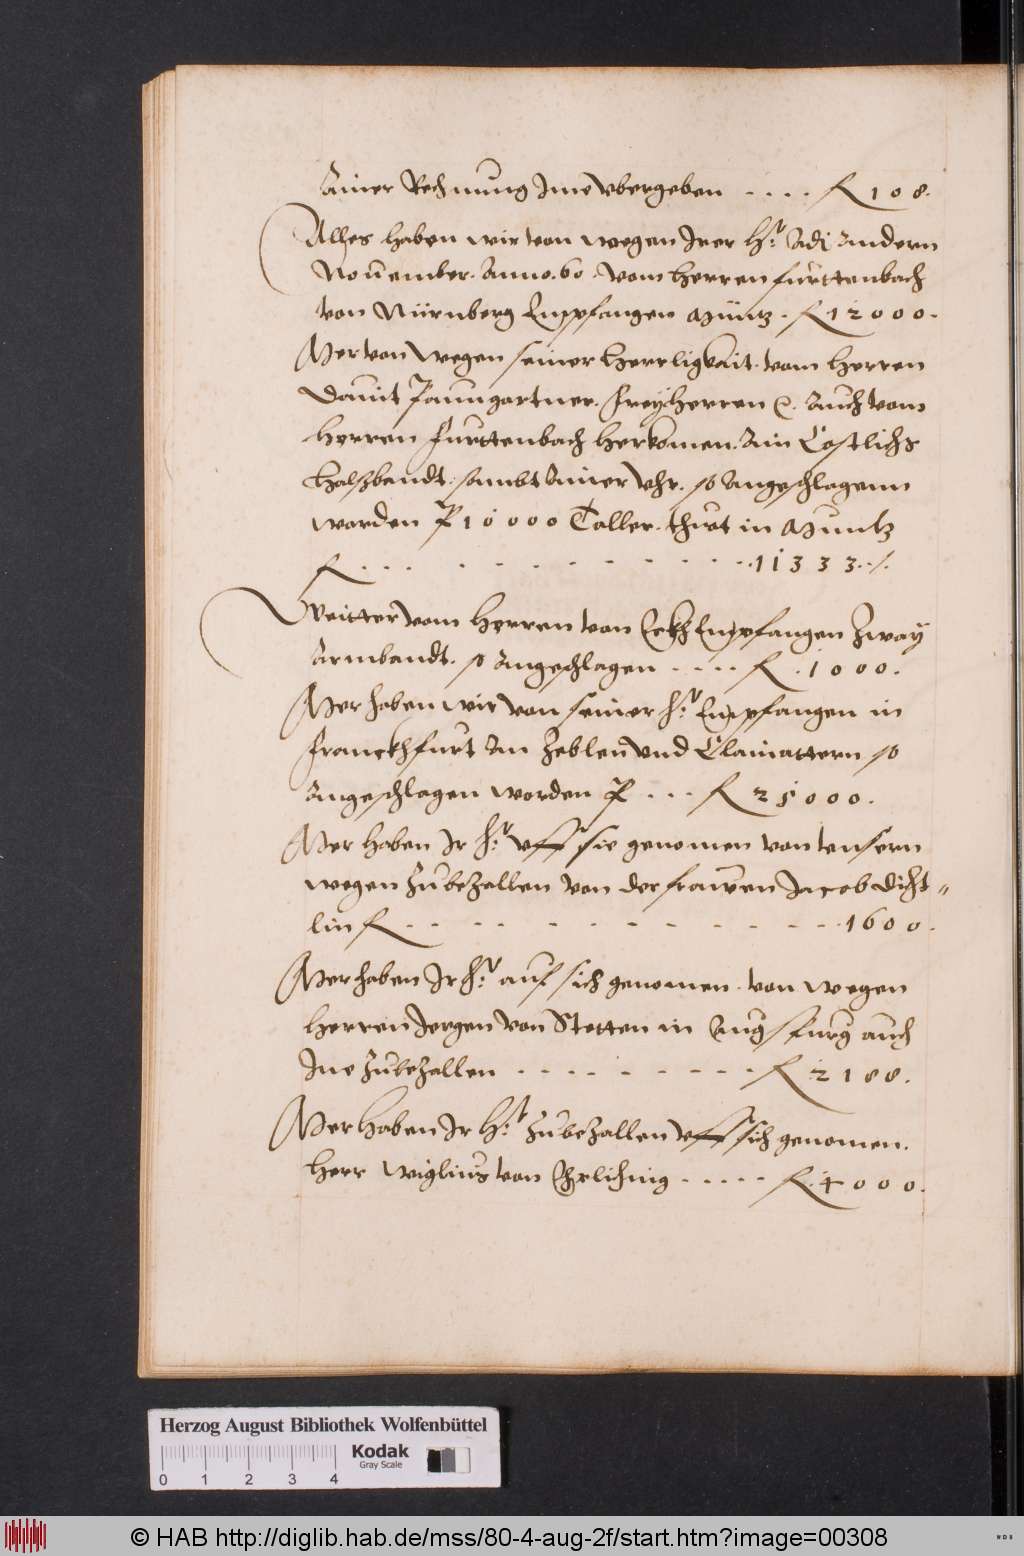 Ainer Rechnung Ime vbergeben . . . . fl 108.
Alles haben wir von wegen Irer Hr: Adj Andern
Nouember. Anno. 60. vom herren furttenbach
von Nürnberg Empfangen Müntz. fl 12000.
Mer von wegen seiner herrligkait. vom herren
Dauit Paumgartner. Freyherren &. Auch vom
herren Furttenbach herkomen. Ain Costlichs
halsbandt. sambt Ainer vhr. so Angeschlagenn
worden P 10000 Taller. thut in Muntz
fl . . . - - - - - - - . . 11333. /.
Weitter vom herren von Eckh Empfangen Zway
Armbandt. so Angeschlagen . . . . . fl . 1000.
Mer haben wir von seiner Hr: Empfangen in
Franckhfurt An Zeblen vnd Clainattern so
Angeschlagen worden P . . . fl 25000.
Mer haben Ir Hr: vff sie genomen von vnsern
wegen Zubezallen von der frauen Jacob Dicht-
lin fl . . - - - - - - - - . 1600.
Mer haben Ir Hr: auf sich genomen. von wegen
herren Jergen von Stetten in Augspurg auch
Ine Zubezallen . . . . - - - - . . fl 2188.
Mer haben Ir Hr: Zubezallen vff sich genomen.
herr wiglius von . . . . . fl . 4000.
Herzog August Bibliothek Wolfenbüttel
Kodak
Gray Scale
0 1 2 3 4
© HAB http://diglib.hab.de/mss/80-4-aug-2f/start.htm?image=00308